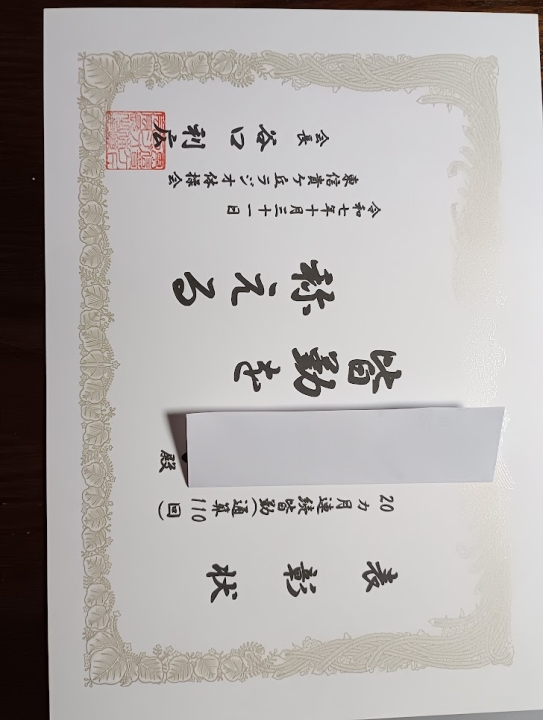 表彰状
20カ月連続皆勤(通算110回)
殿
皆勤を
称える
令和七年十月三十一日
東信貴ヶ丘ラジオ体操会
会長 谷口利広